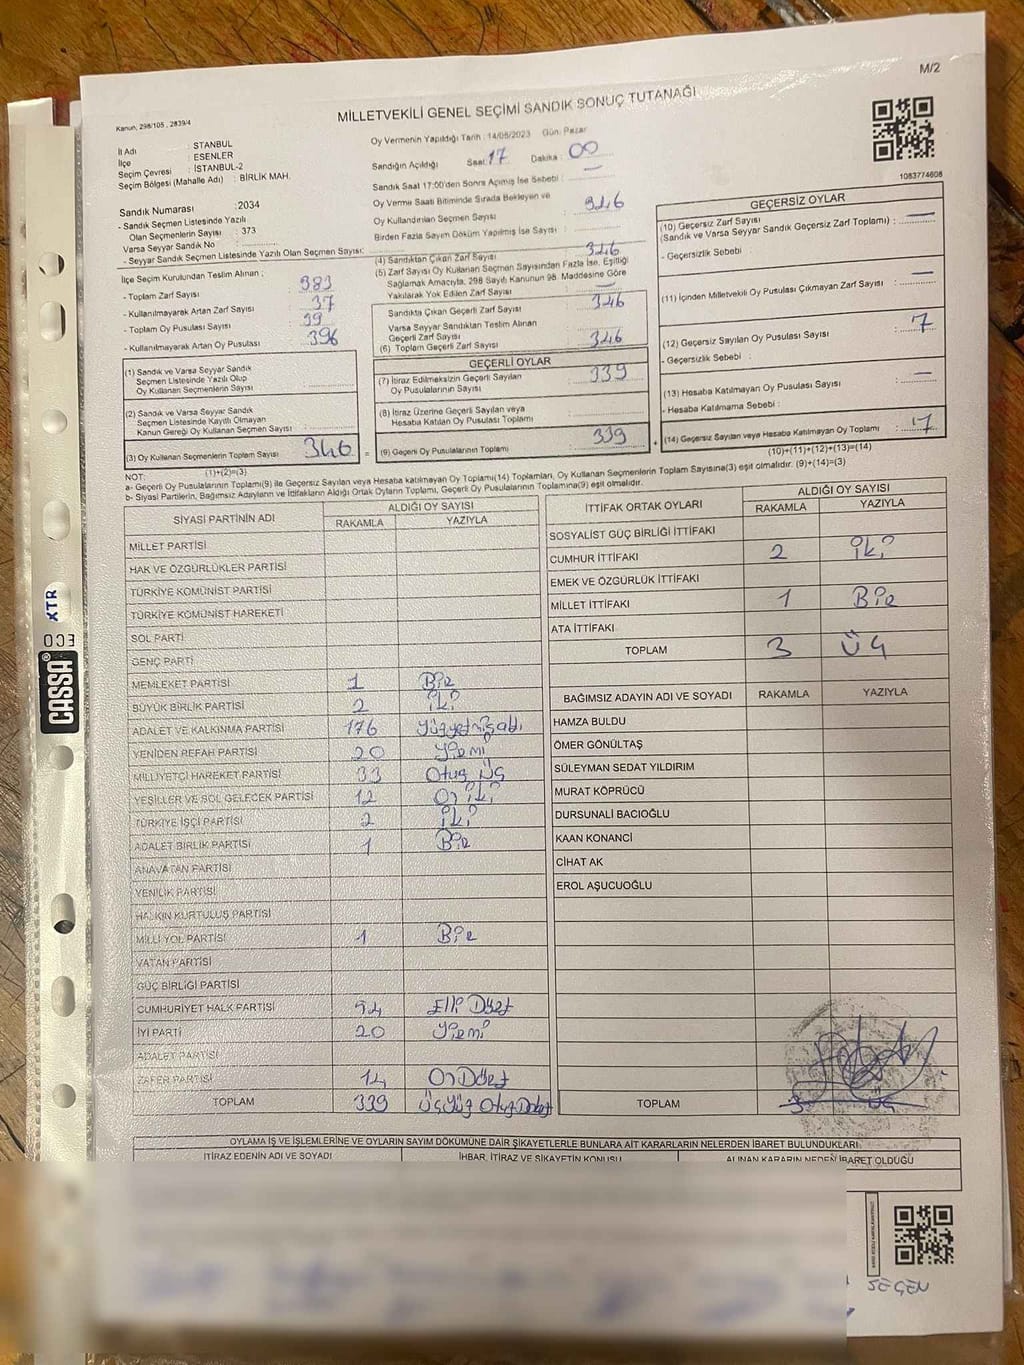 M/2
MİLLETVEKİLİ GENEL SEÇİMİ SANDIK SONUÇ TUTANAĞI
Kanun, 298/105 , 2839/4
İl Adı : STANBUL
İlçe : ESENLER
Seçim Çevresi : İSTANBUL-2
Seçim Bölgesi (Mahalle Adı) : BİRLİK MAH.
Sandık Numarası :2034
- Sandık Seçmen Listesinde Yazılı
Olan Seçmenlerin Sayısı : 373
Varsa Seyyar Sandık No :
- Seyyar Sandık Seçmen Listesinde Yazılı Olan Seçmen Sayısı:
Oy Vermenin Yapıldığı Tarih : 14/05/2023 Gün: Pazar
Sandığın Açıldığı Saat: 17 Dakika : 00
Sandık Saat 17:00'den Sonra Açılmış İse Sebebi : —
Oy Verme Saati Bitiminde Sırada Bekleyen ve
Oy Kullandırılan Seçmen Sayısı : 346
Birden Fazla Sayım Döküm Yapılmış İse Sayısı :
1083774608
İlçe Seçim Kurulundan Teslim Alınan :
- Toplam Zarf Sayısı : 383
- Kullanılmayarak Artan Zarf Sayısı : 37
- Toplam Oy Pusulası Sayısı :
- Kullanılmayarak Artan Oy Pusulası : 396
(1) Sandık ve Varsa Seyyar Sandık
Seçmen Listesinde Yazılı Olup
Oy Kullanan Seçmenlerin Sayısı :
(2) Sandık ve Varsa Seyyar Sandık
Seçmen Listesinde Kayıtlı Olmayan
Kanun Gereği Oy Kullanan Seçmen Sayısı :
(3) Oy Kullanan Seçmenlerin Toplam Sayısı : 346
(1)+(2)=(3)
(4) Sandıktan Çıkan Zarf Sayısı : 346
(5) Zarf Sayısı Oy Kullanan Seçmen Sayısından Fazla İse, Eşitliği
Sağlamak Amacıyla, 298 Sayılı Kanunun 98. Maddesine Göre
Yakılarak Yok Edilen Zarf Sayısı : —
Sandıkta Çıkan Geçerli Zarf Sayısı : 346
Varsa Seyyar Sandıktan Teslim Alınan
Geçerli Zarf Sayısı :
(6) Toplam Geçerli Zarf Sayısı : 346
GEÇERLİ OYLAR
(7) İtiraz Edilmeksizin Geçerli Sayılan
Oy Pusulalarının Sayısı : 339
(8) İtiraz Üzerine Geçerli Sayılan veya
Hesaba Katılan Oy Pusulası Toplamı :
(9) Geçerli Oy Pusulalarının Toplamı : 339
GEÇERSİZ OYLAR
(10) Geçersiz Zarf Sayısı
(Sandık ve Varsa Seyyar Sandık Geçersiz Zarf Toplamı) : —
- Geçersizlik Sebebi :
(11) İçinden Milletvekili Oy Pusulası Çıkmayan Zarf Sayısı : —
(12) Geçersiz Sayılan Oy Pusulası Sayısı : 7
- Geçersizlik Sebebi :
(13) Hesaba Katılmayan Oy Pusulası Sayısı : —
- Hesaba Katılmama Sebebi :
(14) Geçersiz Sayılan veya Hesaba Katılmayan Oy Toplamı : 7
(10)+(11)+(12)+(13)=(14)
NOT:
a- Geçerli Oy Pusulalarının Toplamı(9) ile Geçersiz Sayılan veya Hesaba katılmayan Oy Toplamı(14) Toplamları, Oy Kullanan Seçmenlerin Toplam Sayısına(3) eşit olmalıdır. (9)+(14)=(3)
b- Siyasi Partilerin, Bağımsız Adayların ve İttifakların Aldığı Ortak Oyların Toplamı, Geçerli Oy Pusulalarının Toplamına(9) eşit olmalıdır.
SİYASİ PARTİNİN ADI ALDIĞI OY SAYISI
RAKAMLA YAZIYLA
MİLLET PARTİSİ
HAK VE ÖZGÜRLÜKLER PARTİSİ
TÜRKİYE KOMÜNİST PARTİSİ
TÜRKİYE KOMÜNİST HAREKETİ
SOL PARTİ
GENÇ PARTİ
MEMLEKET PARTİSİ 1 Bir
BÜYÜK BİRLİK PARTİSİ 2 iki
ADALET VE KALKINMA PARTİSİ 176 Yüzyetmişaltı
YENİDEN REFAH PARTİSİ 20 Yirmi
MİLLİYETÇİ HAREKET PARTİSİ 33 Otuz Üç
YEŞİLLER VE SOL GELECEK PARTİSİ 12 On iki
TÜRKİYE İŞÇİ PARTİSİ 2 iki
ADALET BİRLİK PARTİSİ 1 Bir
ANAVATAN PARTİSİ
YENİLİK PARTİSİ
HALKIN KURTULUŞ PARTİSİ
MİLLİ YOL PARTİSİ 1 Bir
VATAN PARTİSİ
GÜÇ BİRLİĞİ PARTİSİ
CUMHURİYET HALK PARTİSİ 54 Elli Dört
İYİ PARTİ 20 Yirmi
ADALET PARTİSİ
ZAFER PARTİSİ 14 On Dört
TOPLAM 339 Üçyüz Otuz
İTTİFAK ORTAK OYLARI ALDIĞI OY SAYISI
RAKAMLA YAZIYLA
SOSYALİST GÜÇ BİRLİĞİ İTTİFAKI
CUMHUR İTTİFAKI 2 iki
EMEK VE ÖZGÜRLÜK İTTİFAKI
MİLLET İTTİFAKI 1 Bir
ATA İTTİFAKI
TOPLAM 3 ÜÇ
BAĞIMSIZ ADAYIN ADI VE SOYADI RAKAMLA YAZIYLA
HAMZA BULDU
ÖMER GÖNÜLTAŞ
SÜLEYMAN SEDAT YILDIRIM
MURAT KÖPRÜCÜ
DURSUNALİ BACIOĞLU
KAAN KONANCİ
CİHAT AK
EROL AŞUCUOĞLU
TOPLAM 3 ÜÇ
OYLAMA İŞ VE İŞLEMLERİNE VE OYLARIN SAYIM DÖKÜMÜNE DAİR ŞİKAYETLERLE BUNLARA AİT KARARLARIN NELERDEN İBARET BULUNDUKLARI
İTİRAZ EDENİN ADI VE SOYADI İHBAR, İTİRAZ VE ŞİKAYETİN KONUSU ALINAN KARARIN NEDEN İBARET OLDUĞU
SEÇEN
CASSA® ECO XTR